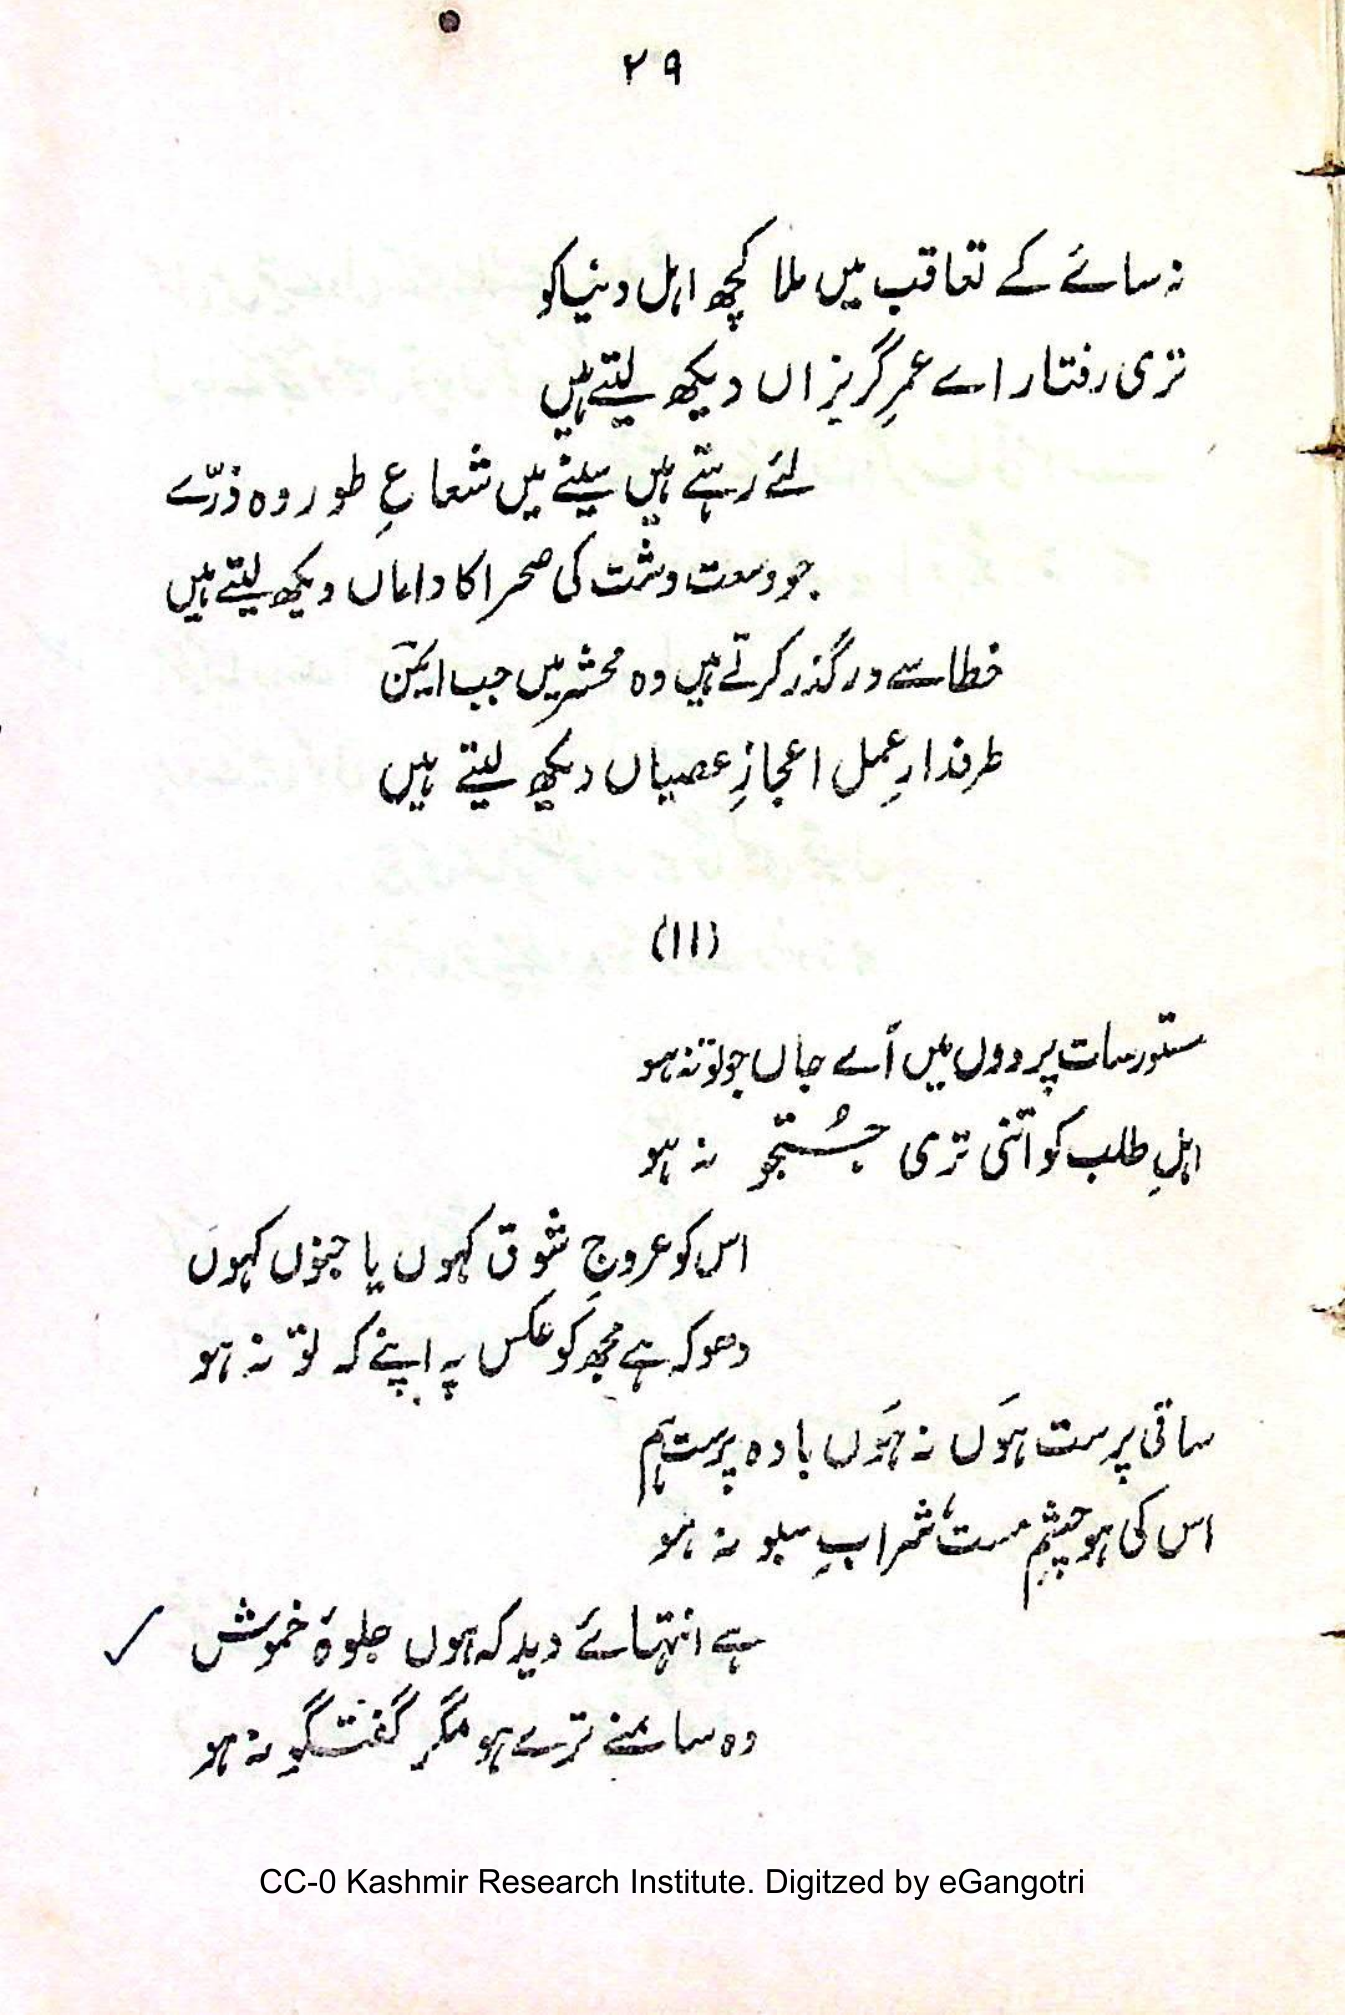 ۲۹
نہ سائے کے تعاقب میں ملا کچھ اہل دنیا کو
تری رفتار اے عمرِ گریزاں دیکھ لیتے ہیں
لئے رہتے ہیں سینے میں شعاعِ طور وہ ذرّے
جو وسعت دشت کی صحرا کا داماں دیکھ لیتے ہیں
خطا سے درگذر کرتے ہیں وہ محشر میں جب ایمنؔ
طرفدارِ عمل اعجازِ عصیاں دیکھ لیتے ہیں
(۱۱)
ستور سات پردوں میں اَے جاں جو تو نہ ہو
اہلِ طلب کو اتنی تری جُستجو نہ ہو
اس کو عروجِ شوق کہوں یا جنوں کہوں
دھوکہ ہے مجھ کو عکس پہ اپنے کہ تو نہ ہو
ساقی پرست ہَوں نہ ہَوں بادہ پرست ہم
اس کی ہو چشمِ مست، شرابِ سبو نہ ہو
ہے انتہائے دید کہ ہوں جلوۂ خموش
وہ سامنے ترے ہو مگر گفتگو نہ ہو
CC-0 Kashmir Research Institute. Digitzed by eGangotri